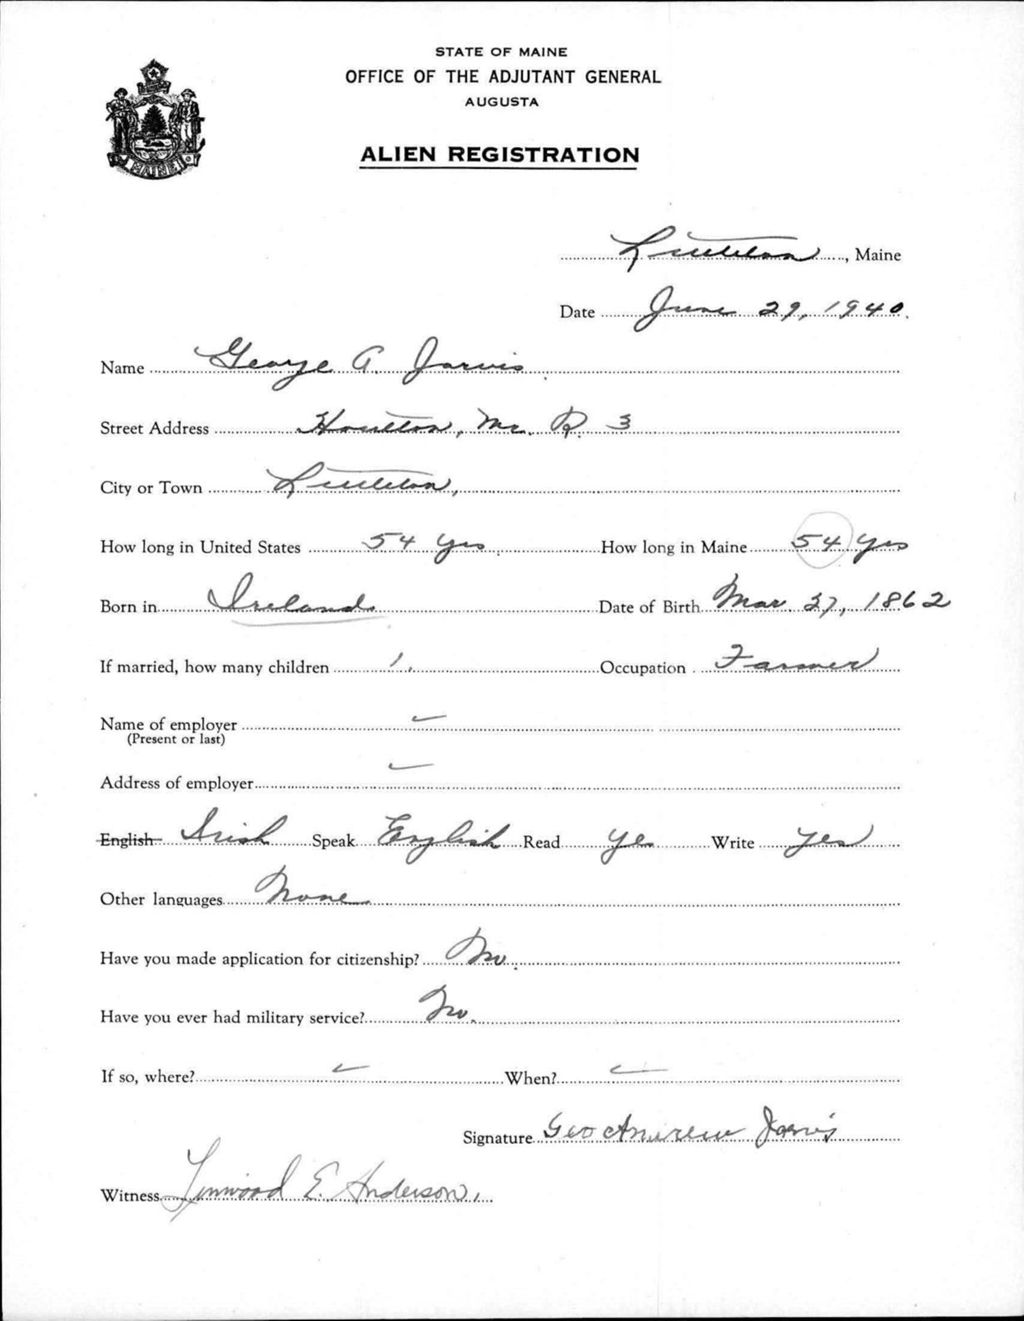 STATE OF MAINE
OFFICE OF THE ADJUTANT GENERAL
AUGUSTA
ALIEN REGISTRATION
MAINE
Littleton, Maine
Date June 29, 1940.
Name George A. Jarvis
Street Address Houlton, Me. R. 3
City or Town Littleton,
How long in United States 54 yrs. How long in Maine 54 yrs
Born in Ireland Date of Birth Mar. 27, 1862
If married, how many children 1. Occupation Farmer
Name of employer
(Present or last)
Address of employer
English Irish Speak English Read yes Write yes
Other languages None
Have you made application for citizenship? No.
Have you ever had military service? No.
If so, where? When?
Signature Geo Andrew Jarvis
Witness Linwood E. Anderson,